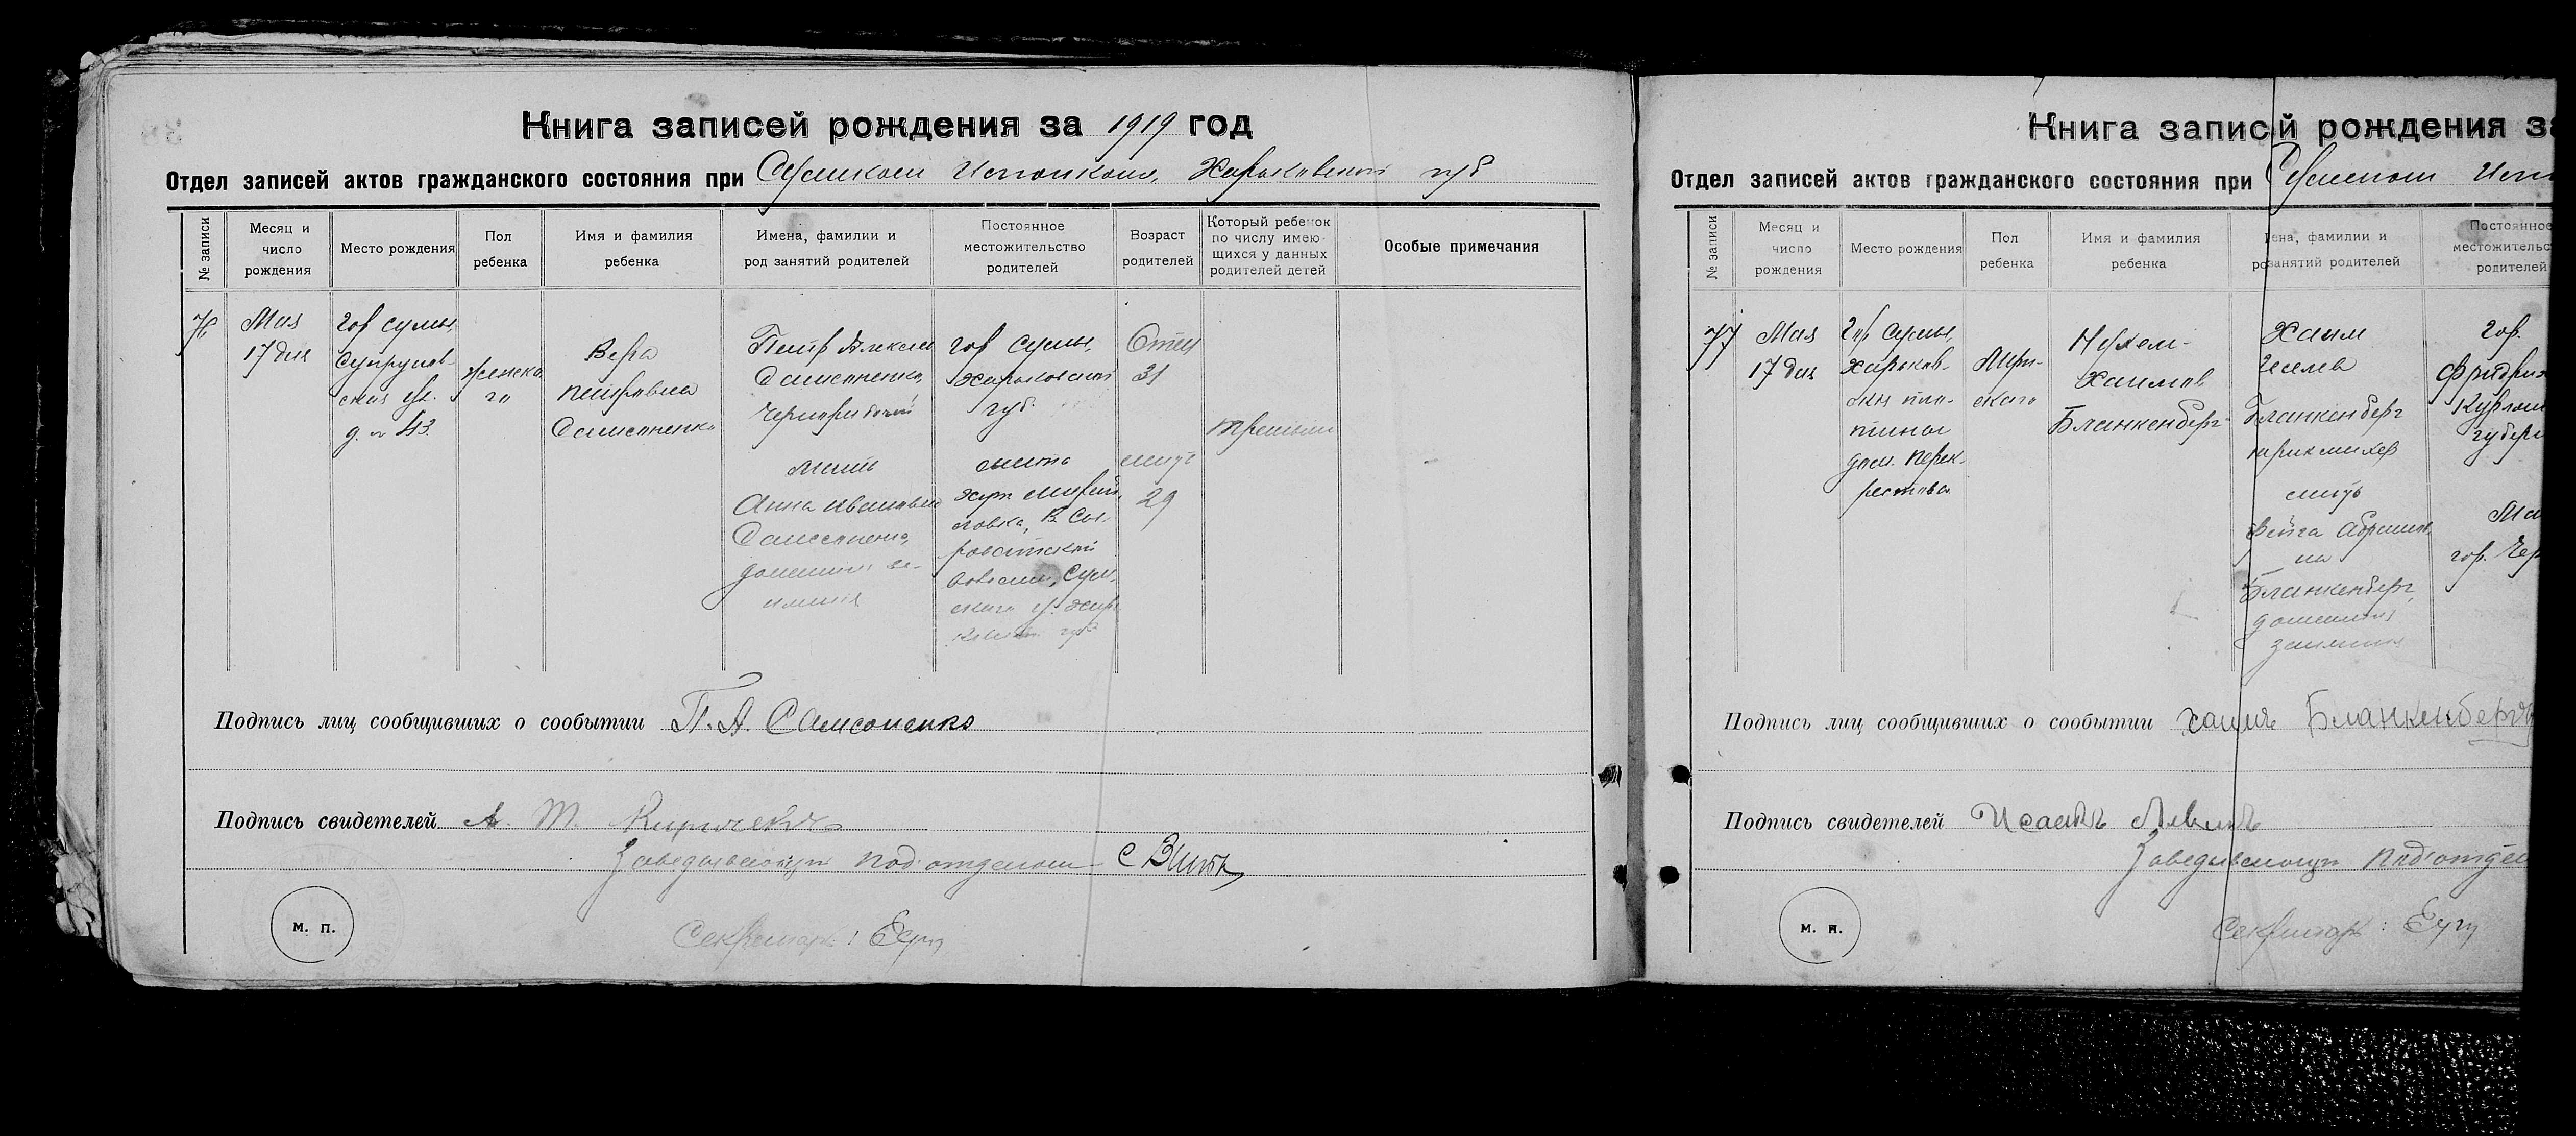 Книга записей рождения за 1919 год
Отдел записей актов гражданского состояния при Сумском Исполкоме, Харьковской губ
№ записи
Месяц и число рождения
Место рождения
Пол ребенка
Имя и фамилия ребенка
Имена, фамилии и род занятий родителей
Постоянное местожительство родителей
Возраст родителей
Который ребенок по числу имеющихся у данных родителей детей
Особые примечания
76
Мая
17 дня
гор Сумы,
Супрунов-
ская ул.
д. № 43
женска
го
Вера
Петровна
Самсоненко
Петр Алексеев
Самсоненко,
мать
Анна Ивановна
Самсоненко,
домашние за-
нятия
гор Сумы,
Харьковской
губ.
хут.
ловка, В. Сы-
роватской
волости, Сум-
ского у. Харь
ковской губ
Отец
31
мать
29
третий
Подпись лиц сообщивших о событии П. А. Самсоненко
Подпись свидетелей А. Т.
Заведывающий подотделом
м. п.
Секретарь:
Книга записей рождения за
Отдел записей актов гражданского состояния при Сумском Исп
№ записи
Месяц и число рождения
Место рождения
Пол ребенка
Имя и фамилия ребенка
ена, фамилии и ро занятий родителей
Постоянное местожительс родителей
77
Мая
17 дня
Гор Сумы,
Харьков-
ская пло-
дом. Перек-
рестова
Муж-
ского
Нухем-
Хаимов
Бланкенберг
Хаим
Бланкенберг
парикмахер
мать
Фейга Абрамов-
на
Бланкенберг,
домашния
занятия
гор.
Фридрих
Курлян
губерн
Ма
гор. Чер
Подпись лиц сообщивших о событии Хаимъ Бланкенбергъ
Подпись свидетелей Исаакъ
Заведывающий подотдел
м. п.
Секретарь: